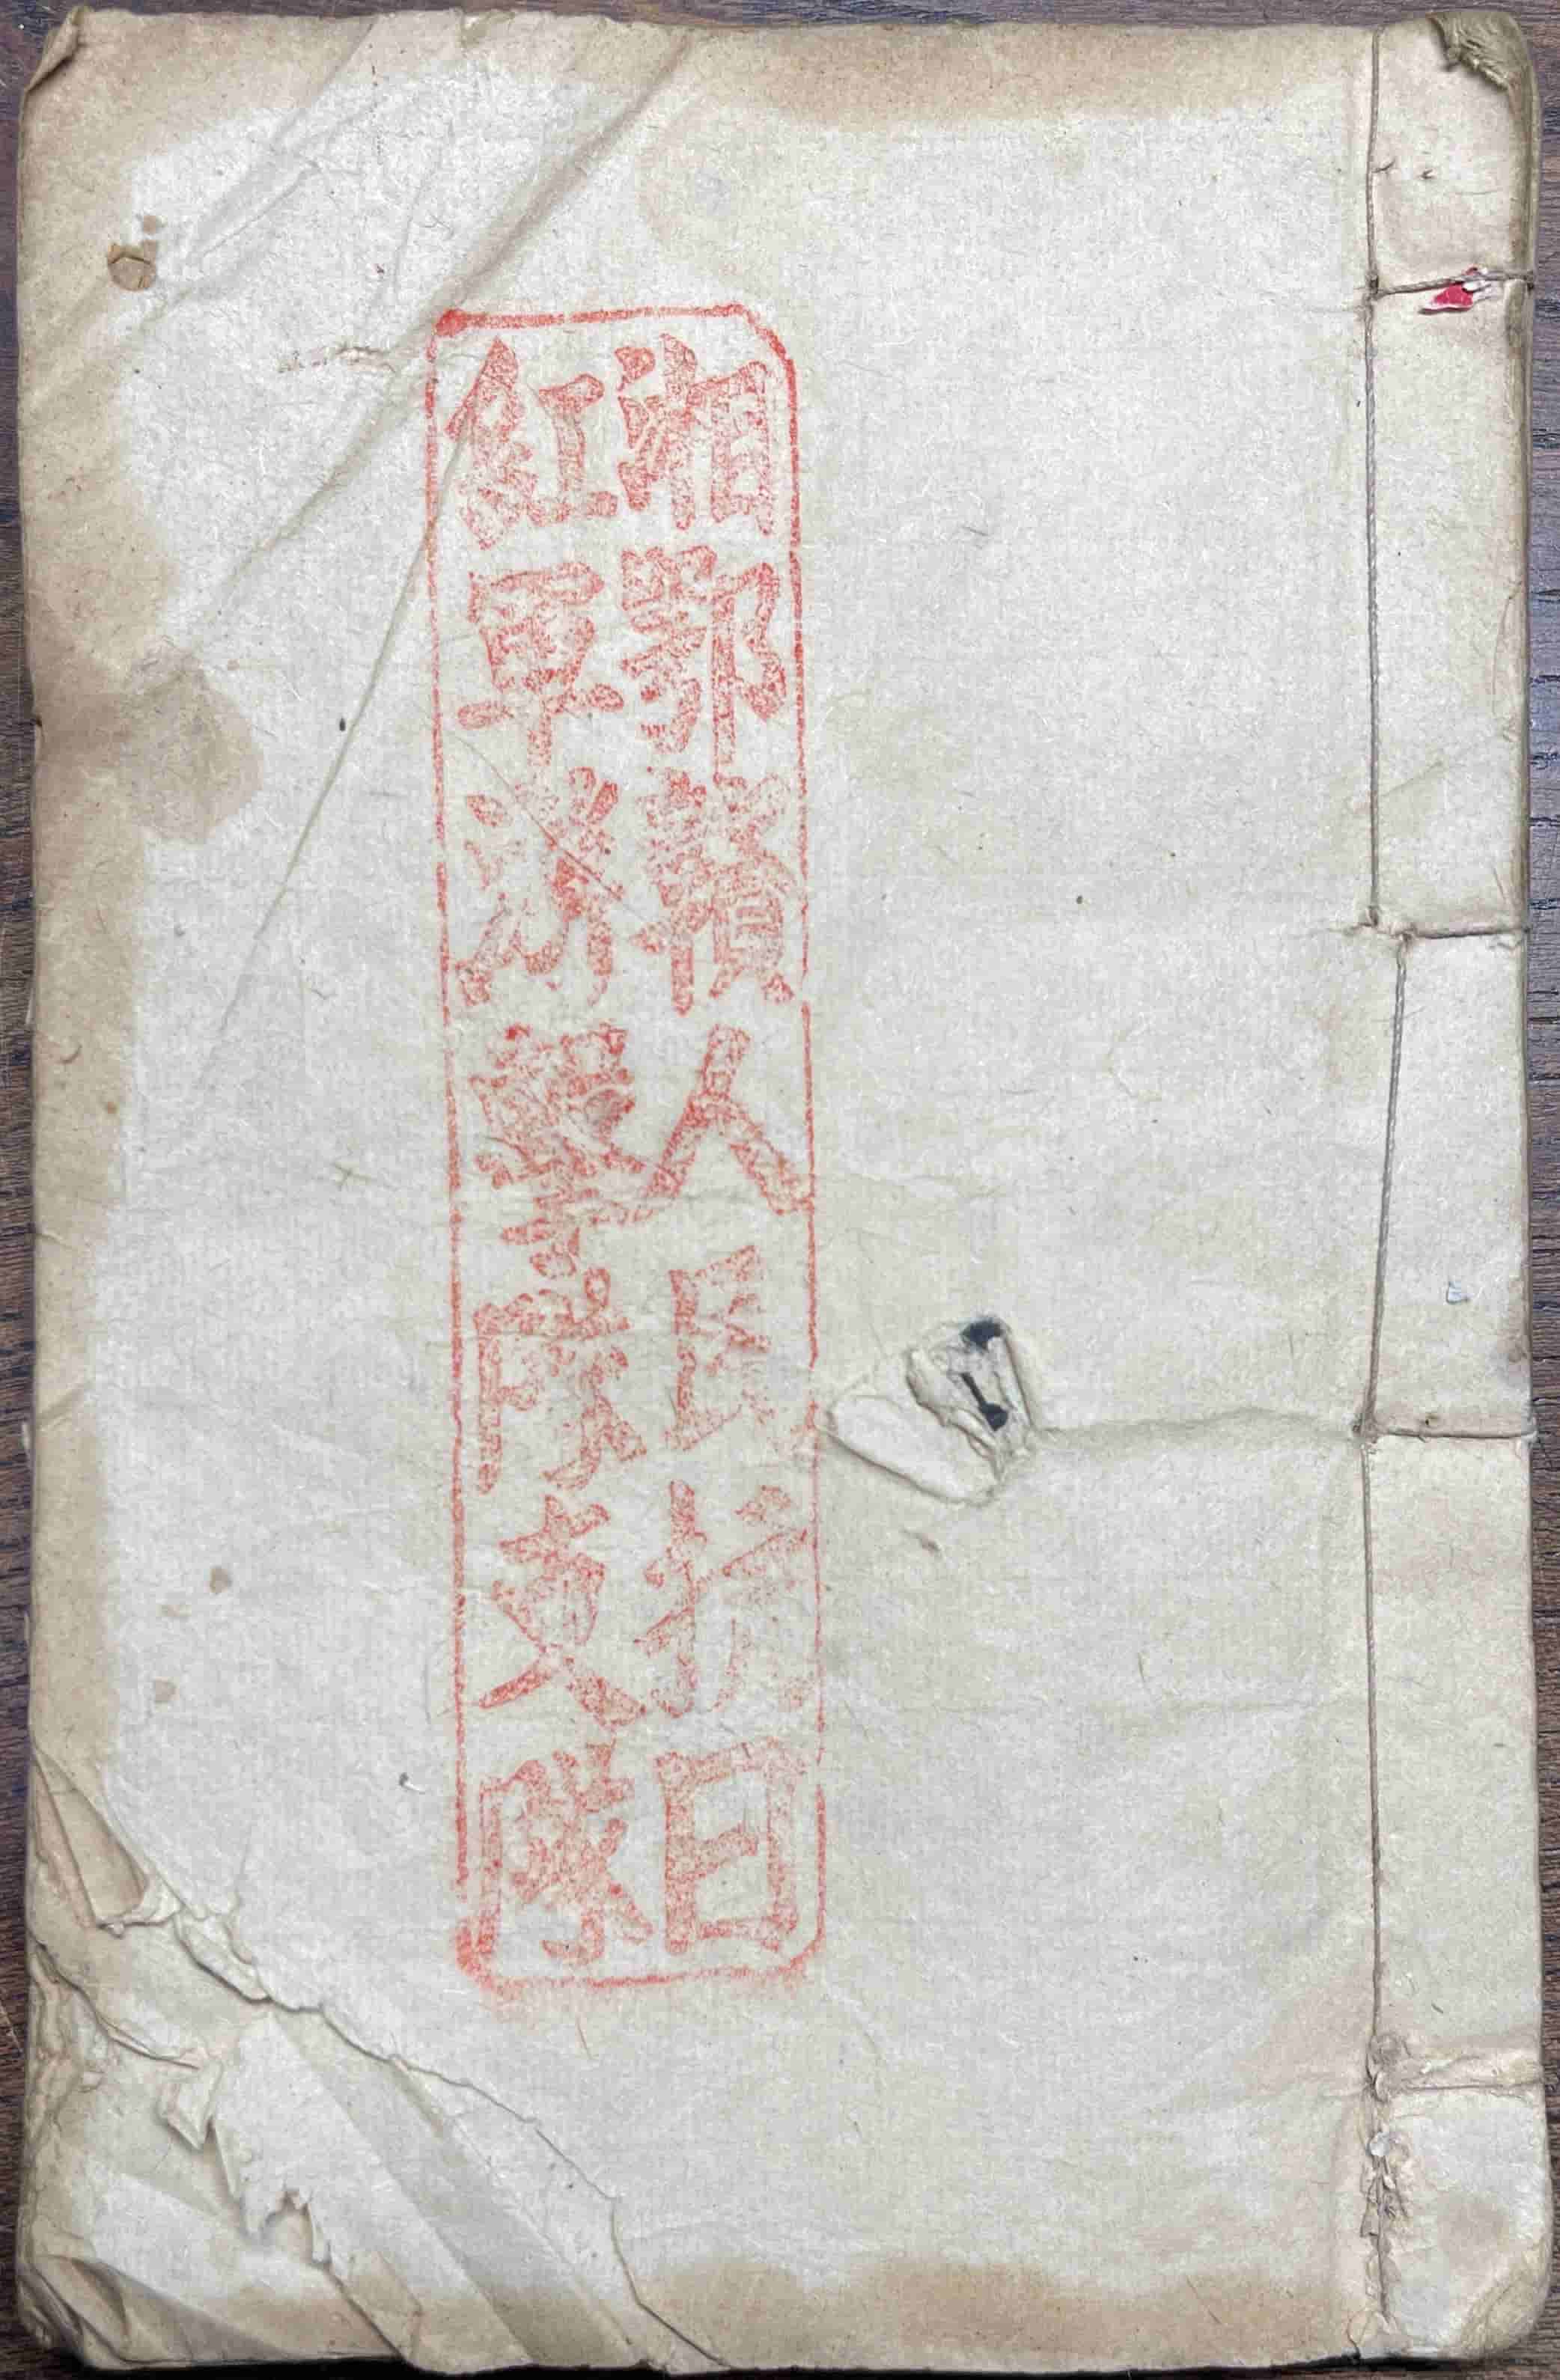 湘鄂贛人民抗日
紅軍游擊隊支隊